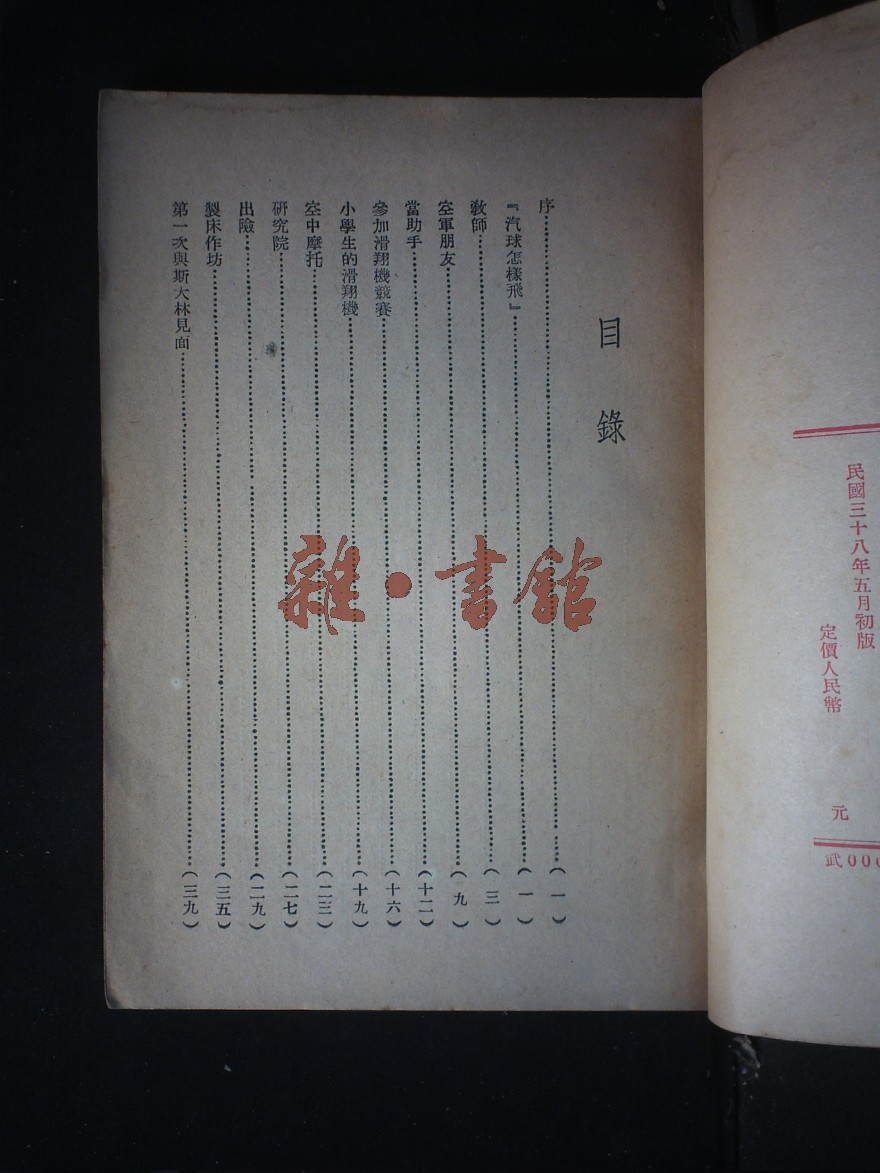 民國三十八年五月初版
定價人民幣 元
武000
目錄
序……(一)
『汽球怎樣飛』……(一)
教師……(三)
空軍朋友……(九)
當助手……(十二)
參加滑翔機競賽……(十六)
小學生的滑翔機……(十九)
空中摩托……(二三)
研究院……(二七)
出險……(二九)
製床作坊……(三五)
第一次與斯大林見面……(三九)
雜·書館